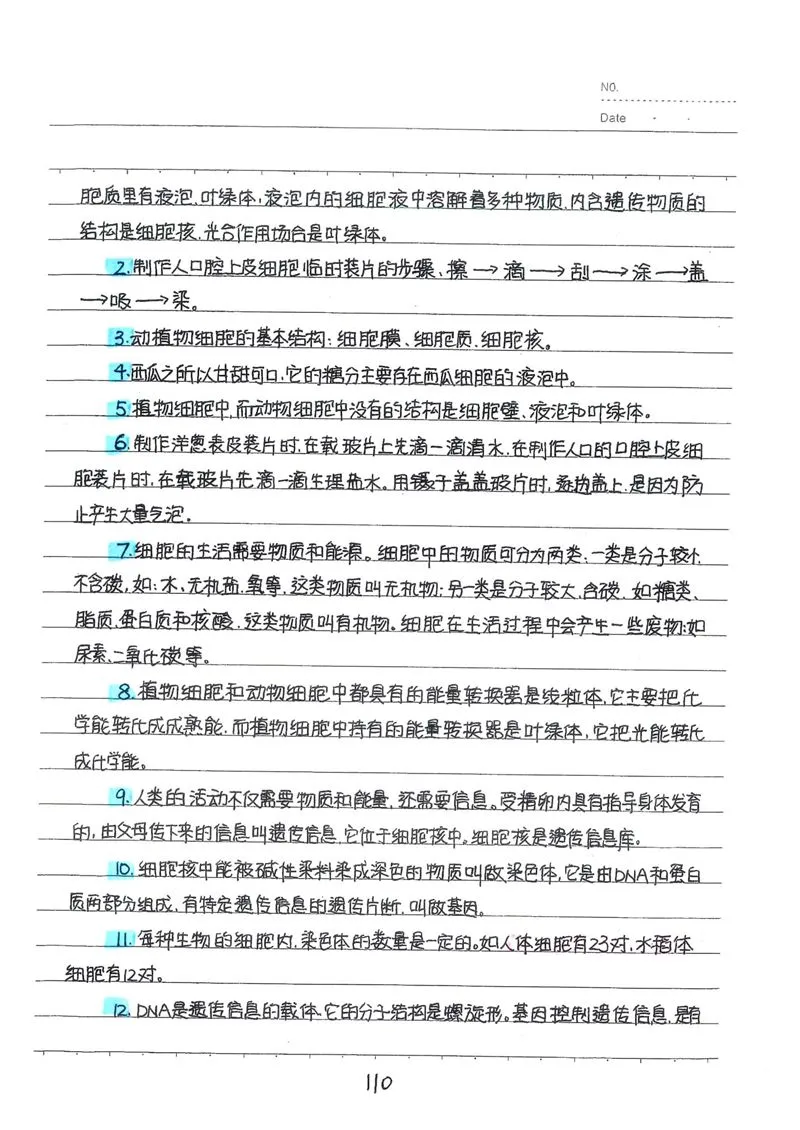 NO.
Date
胞质里有液泡、叶绿体,液泡内的细胞液中溶解着多种物质、内含遗传物质的
结构是细胞核、光合作用场合是叶绿体。
2.制作人口腔上皮细胞临时装片的步骤、擦→滴→刮→涂→盖
→吸→染。
3.动植物细胞的基本结构:细胞膜、细胞质、细胞核。
4.西瓜之所以甘甜可口,它的糖分主要存在西瓜细胞的液泡中。
5.植物细胞中,而动物细胞中没有的结构是细胞壁、液泡和叶绿体。
6.制作洋葱表皮装片时,在载玻片上先滴一滴清水,在制作人口的口腔上皮细
胞装片时,在载玻片先滴一滴生理盐水。用镊子盖盖玻片时,逐边盖上,是因为防
止产生大量气泡。
7.细胞的生活需要物质和能源。细胞中的物质可分为两类、一类是分子较小
不含碳,如:水、无机盐、氧等,这类物质叫无机物;另一类是分子较大、含碳、如糖类、
脂质、蛋白质和核酸、这类物质叫有机物。细胞在生活过程中会产生一些废物:如
尿素、二氧化碳等。
8.植物细胞和动物细胞中都具有的能量转换器是线粒体,它主要把化
学能转化成成熟能,而植物细胞中持有的能量转换器是叶绿体,它把光能转化
成化学能。
9.人类的活动不仅需要物质和能量,还需要信息。受精卵内具有指导身体发育
的,由父母传下来的信息叫遗传信息,它位于细胞核中。细胞核是遗传信息库.
10.细胞核中能被碱性染料染成深色的物质叫做染色体,它是由DNA和蛋白
质两部分组成,有特定遗传信息的遗传片断,叫做基因。
11.每种生物的细胞内,染色体的数量是一定的。如人体细胞有23对,水稻体
细胞有12对。
12.DNA是遗传信息的载体、它的分子结构是螺旋形。基因控制遗传信息,是有
110